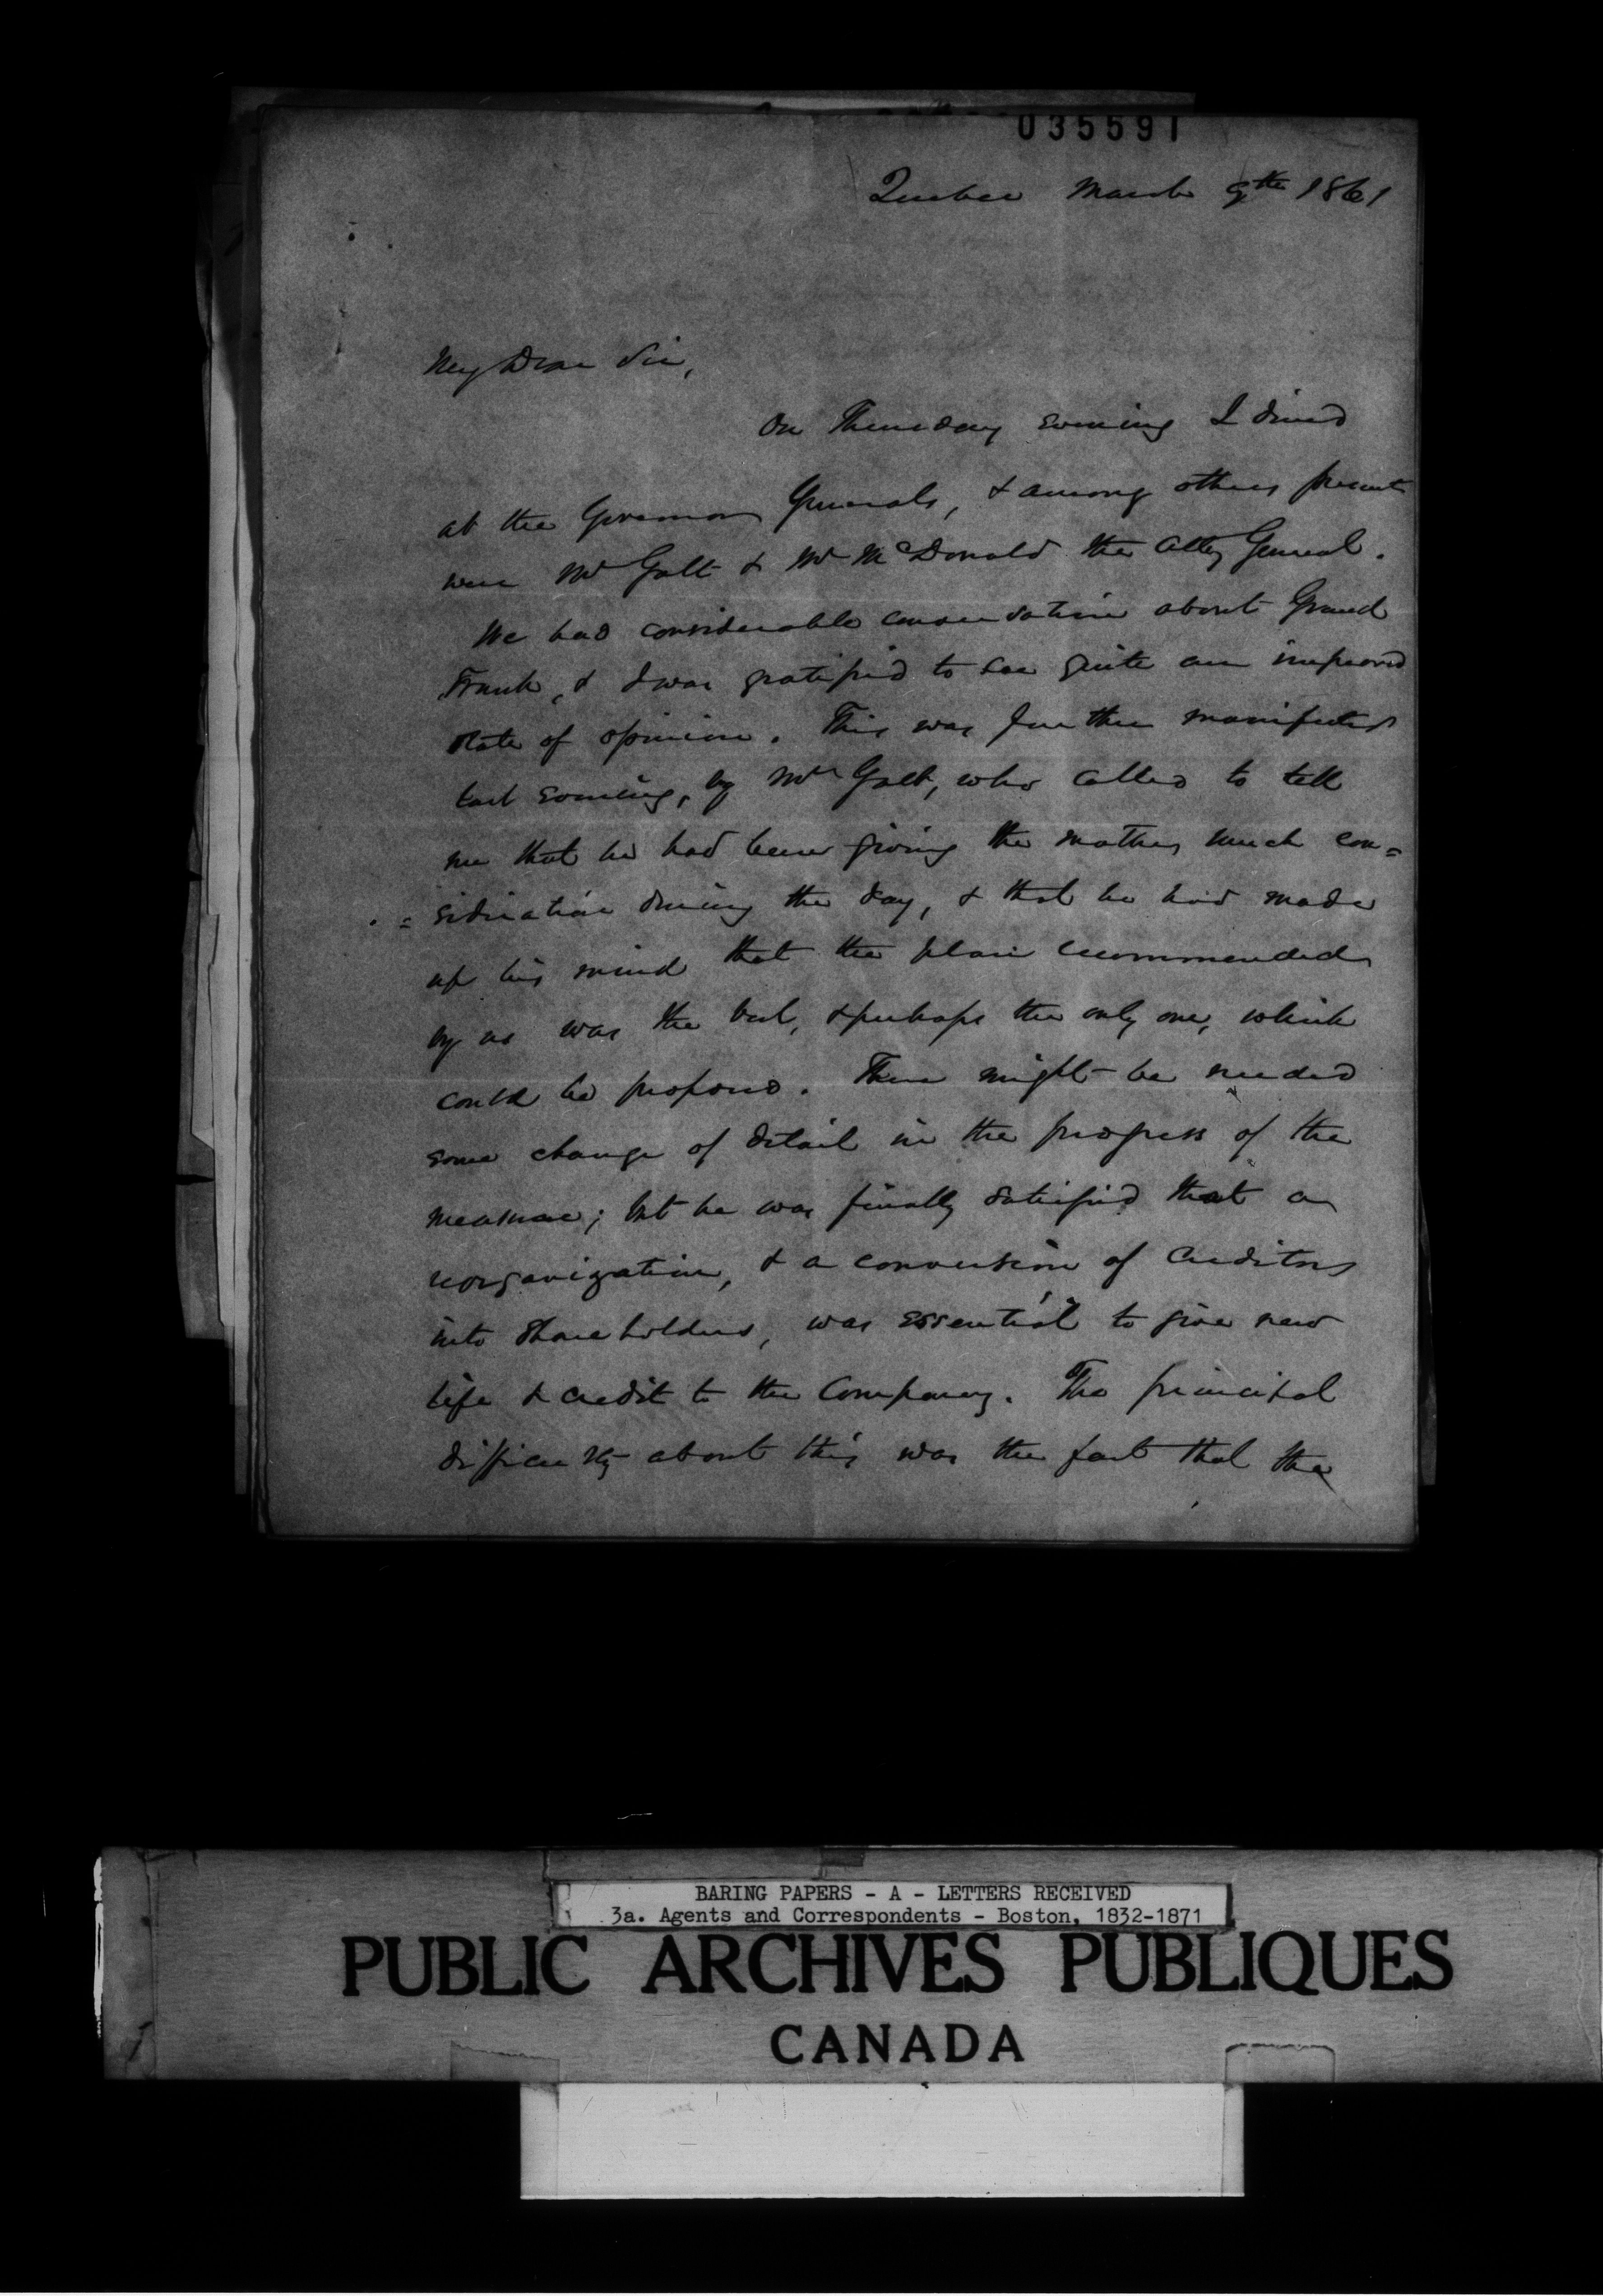 035591
Quebec March 9th 1861
My Dear Sir,
On Thursday evening I dined
at the Governor Generals, & among others present
were Mr Galt & Mr McDonald the Atty General.
We had considerable conversation about Grand
Trunk, & I was gratified to see quite an improved
state of opinion. This was further manifested
last evening, by Mr Galt, who called to tell
me that he had been giving the matter much con=
=sideration during the day, & that he had made
up his mind that the plan recommended
by us was the best, & perhaps the only one, which
could be proposed. There might be needed
some change of detail in the progress of the
measure; but he was finally satisfied that a
reorganization, & a conversion of creditors
into Shareholders, was essential to give new
life & credit to the Company. The principal
difficulty about this was the fact that the
BARING PAPERS - A - LETTERS RECEIVED
3a. Agents and Correspondents - Boston, 1832-1871
PUBLIC ARCHIVES PUBLIQUES
CANADA